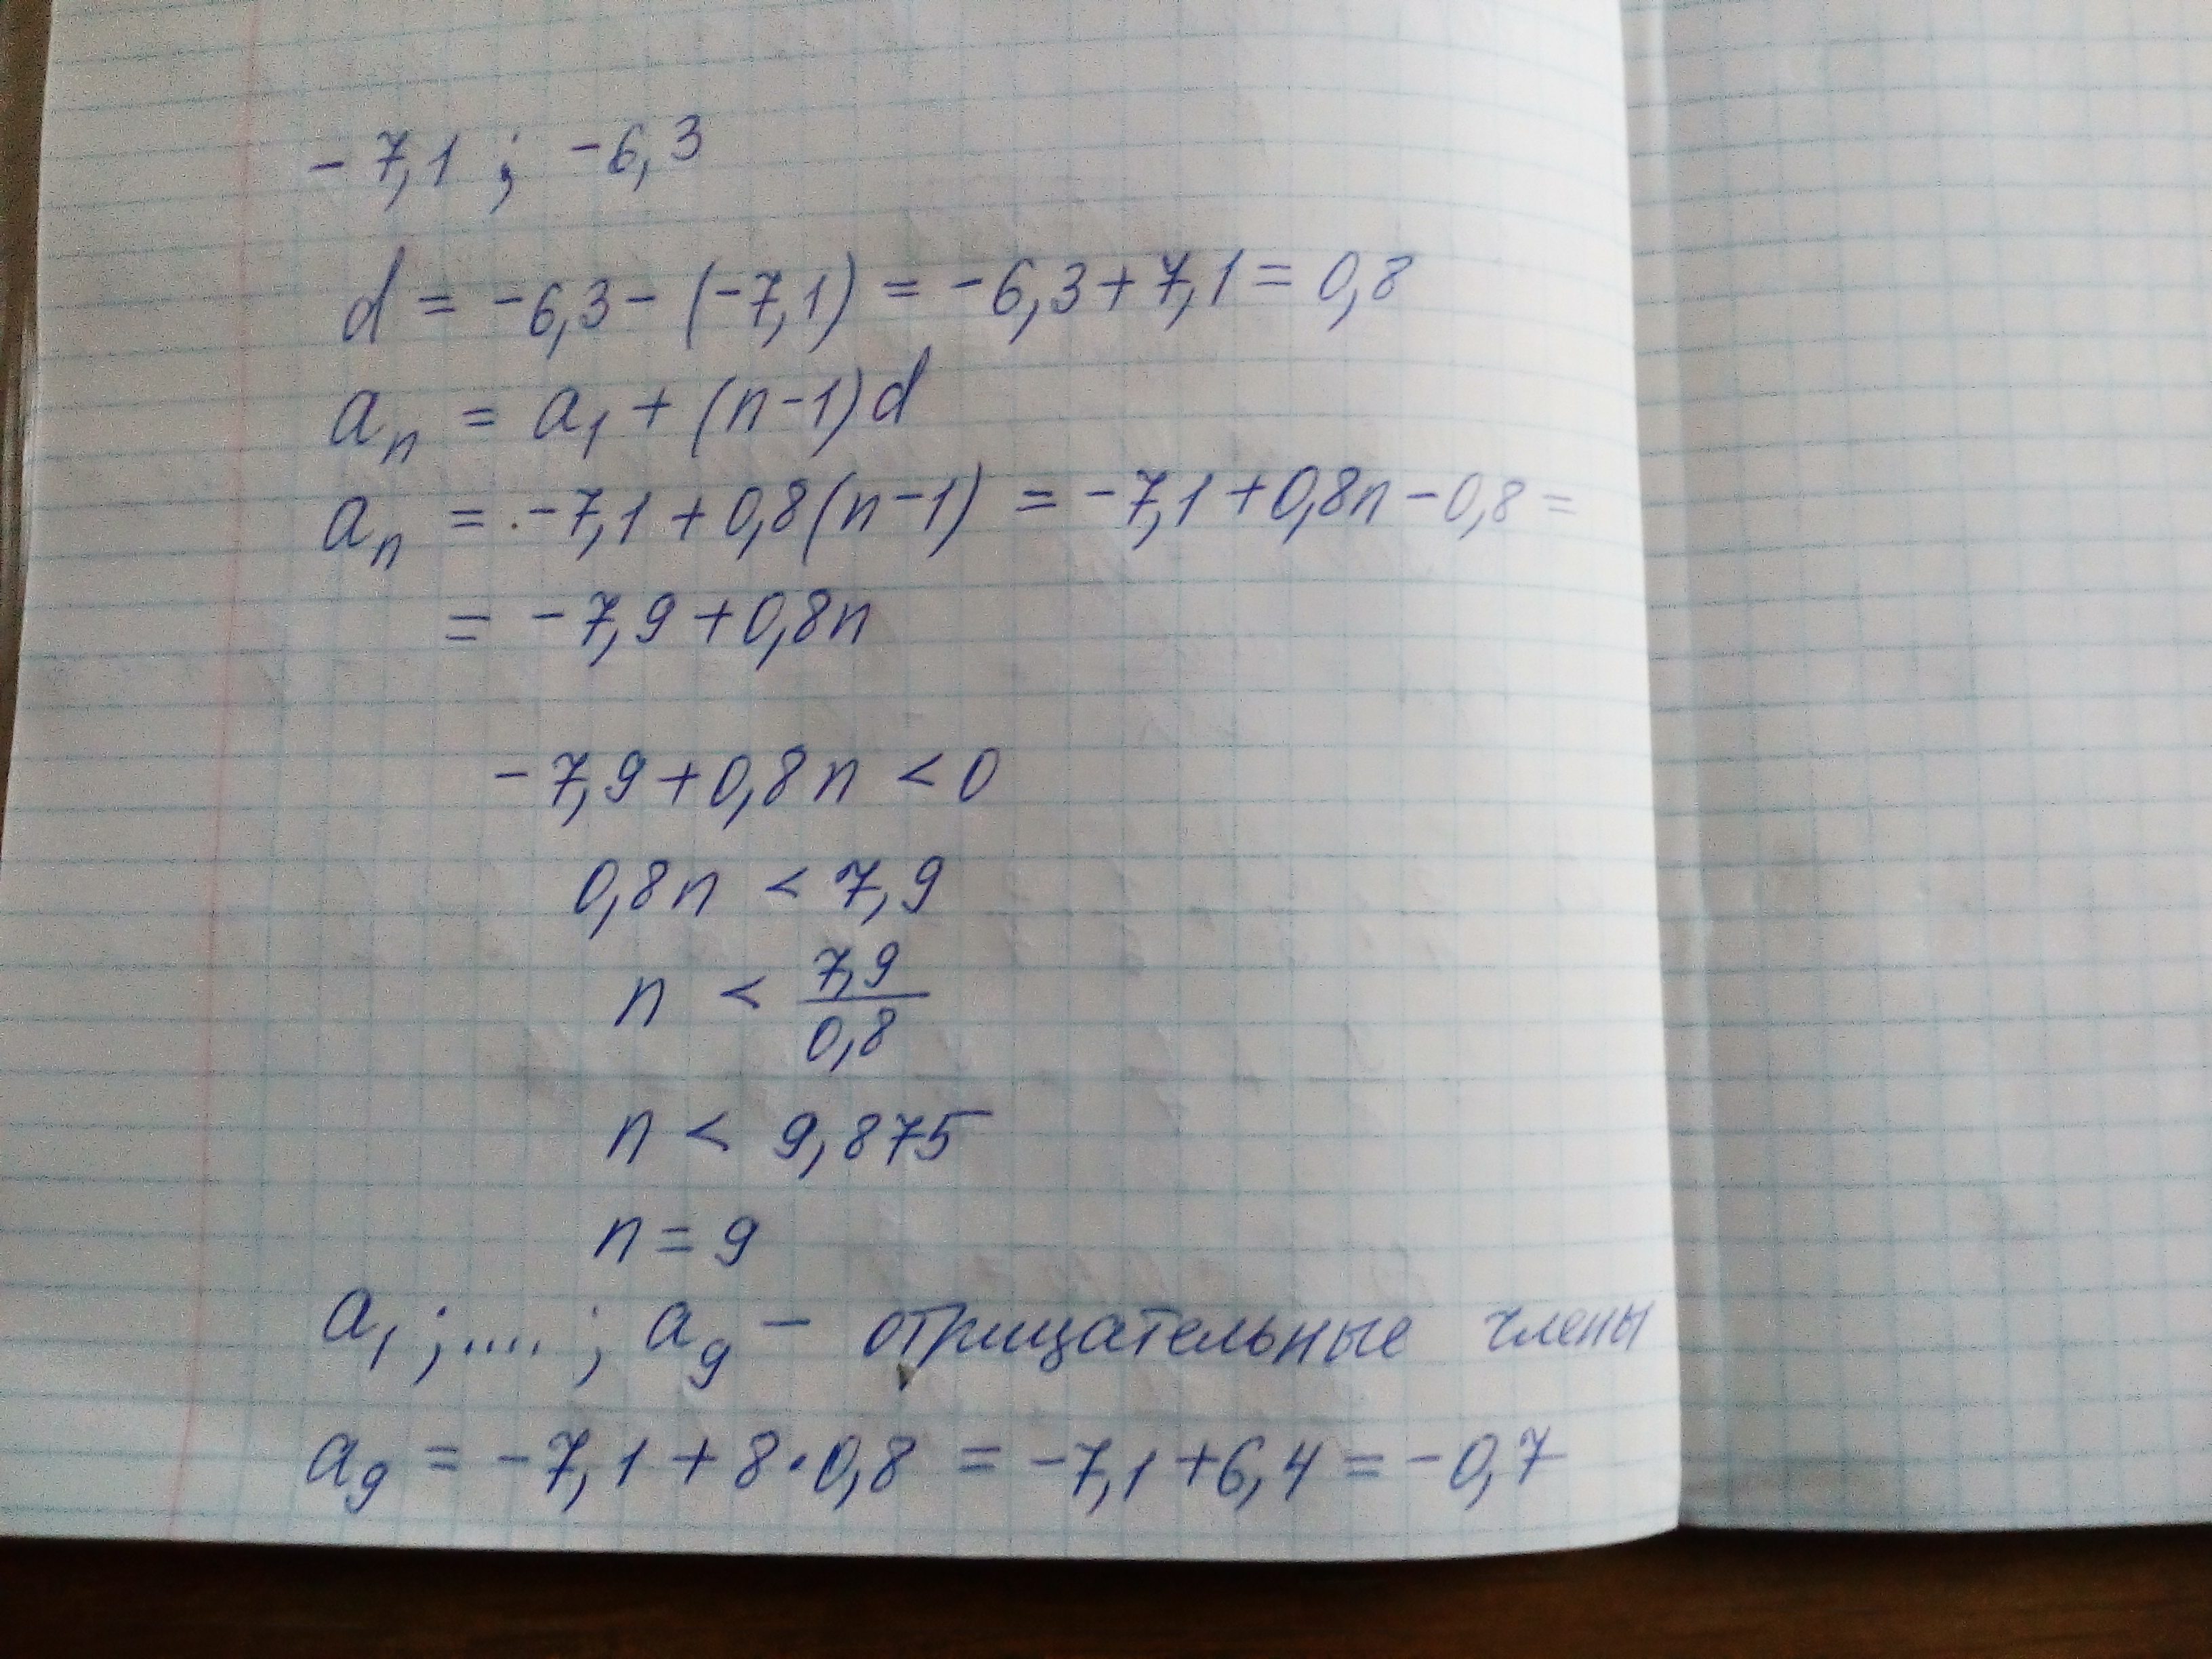 -7,1 ; -6,3
d = -6,3 - (-7,1) = -6,3 + 7,1 = 0,8
aₙ = a₁ + (n-1)d
aₙ = -7,1 + 0,8(n-1) = -7,1 + 0,8n - 0,8 =
= -7,9 + 0,8n
-7,9 + 0,8n < 0
0,8n < 7,9
n < 7,9/0,8
n < 9,875
n = 9
a₁; ....; a₉ - отрицательные члены
a₉ = -7,1 + 8·0,8 = -7,1 + 6,4 = -0,7